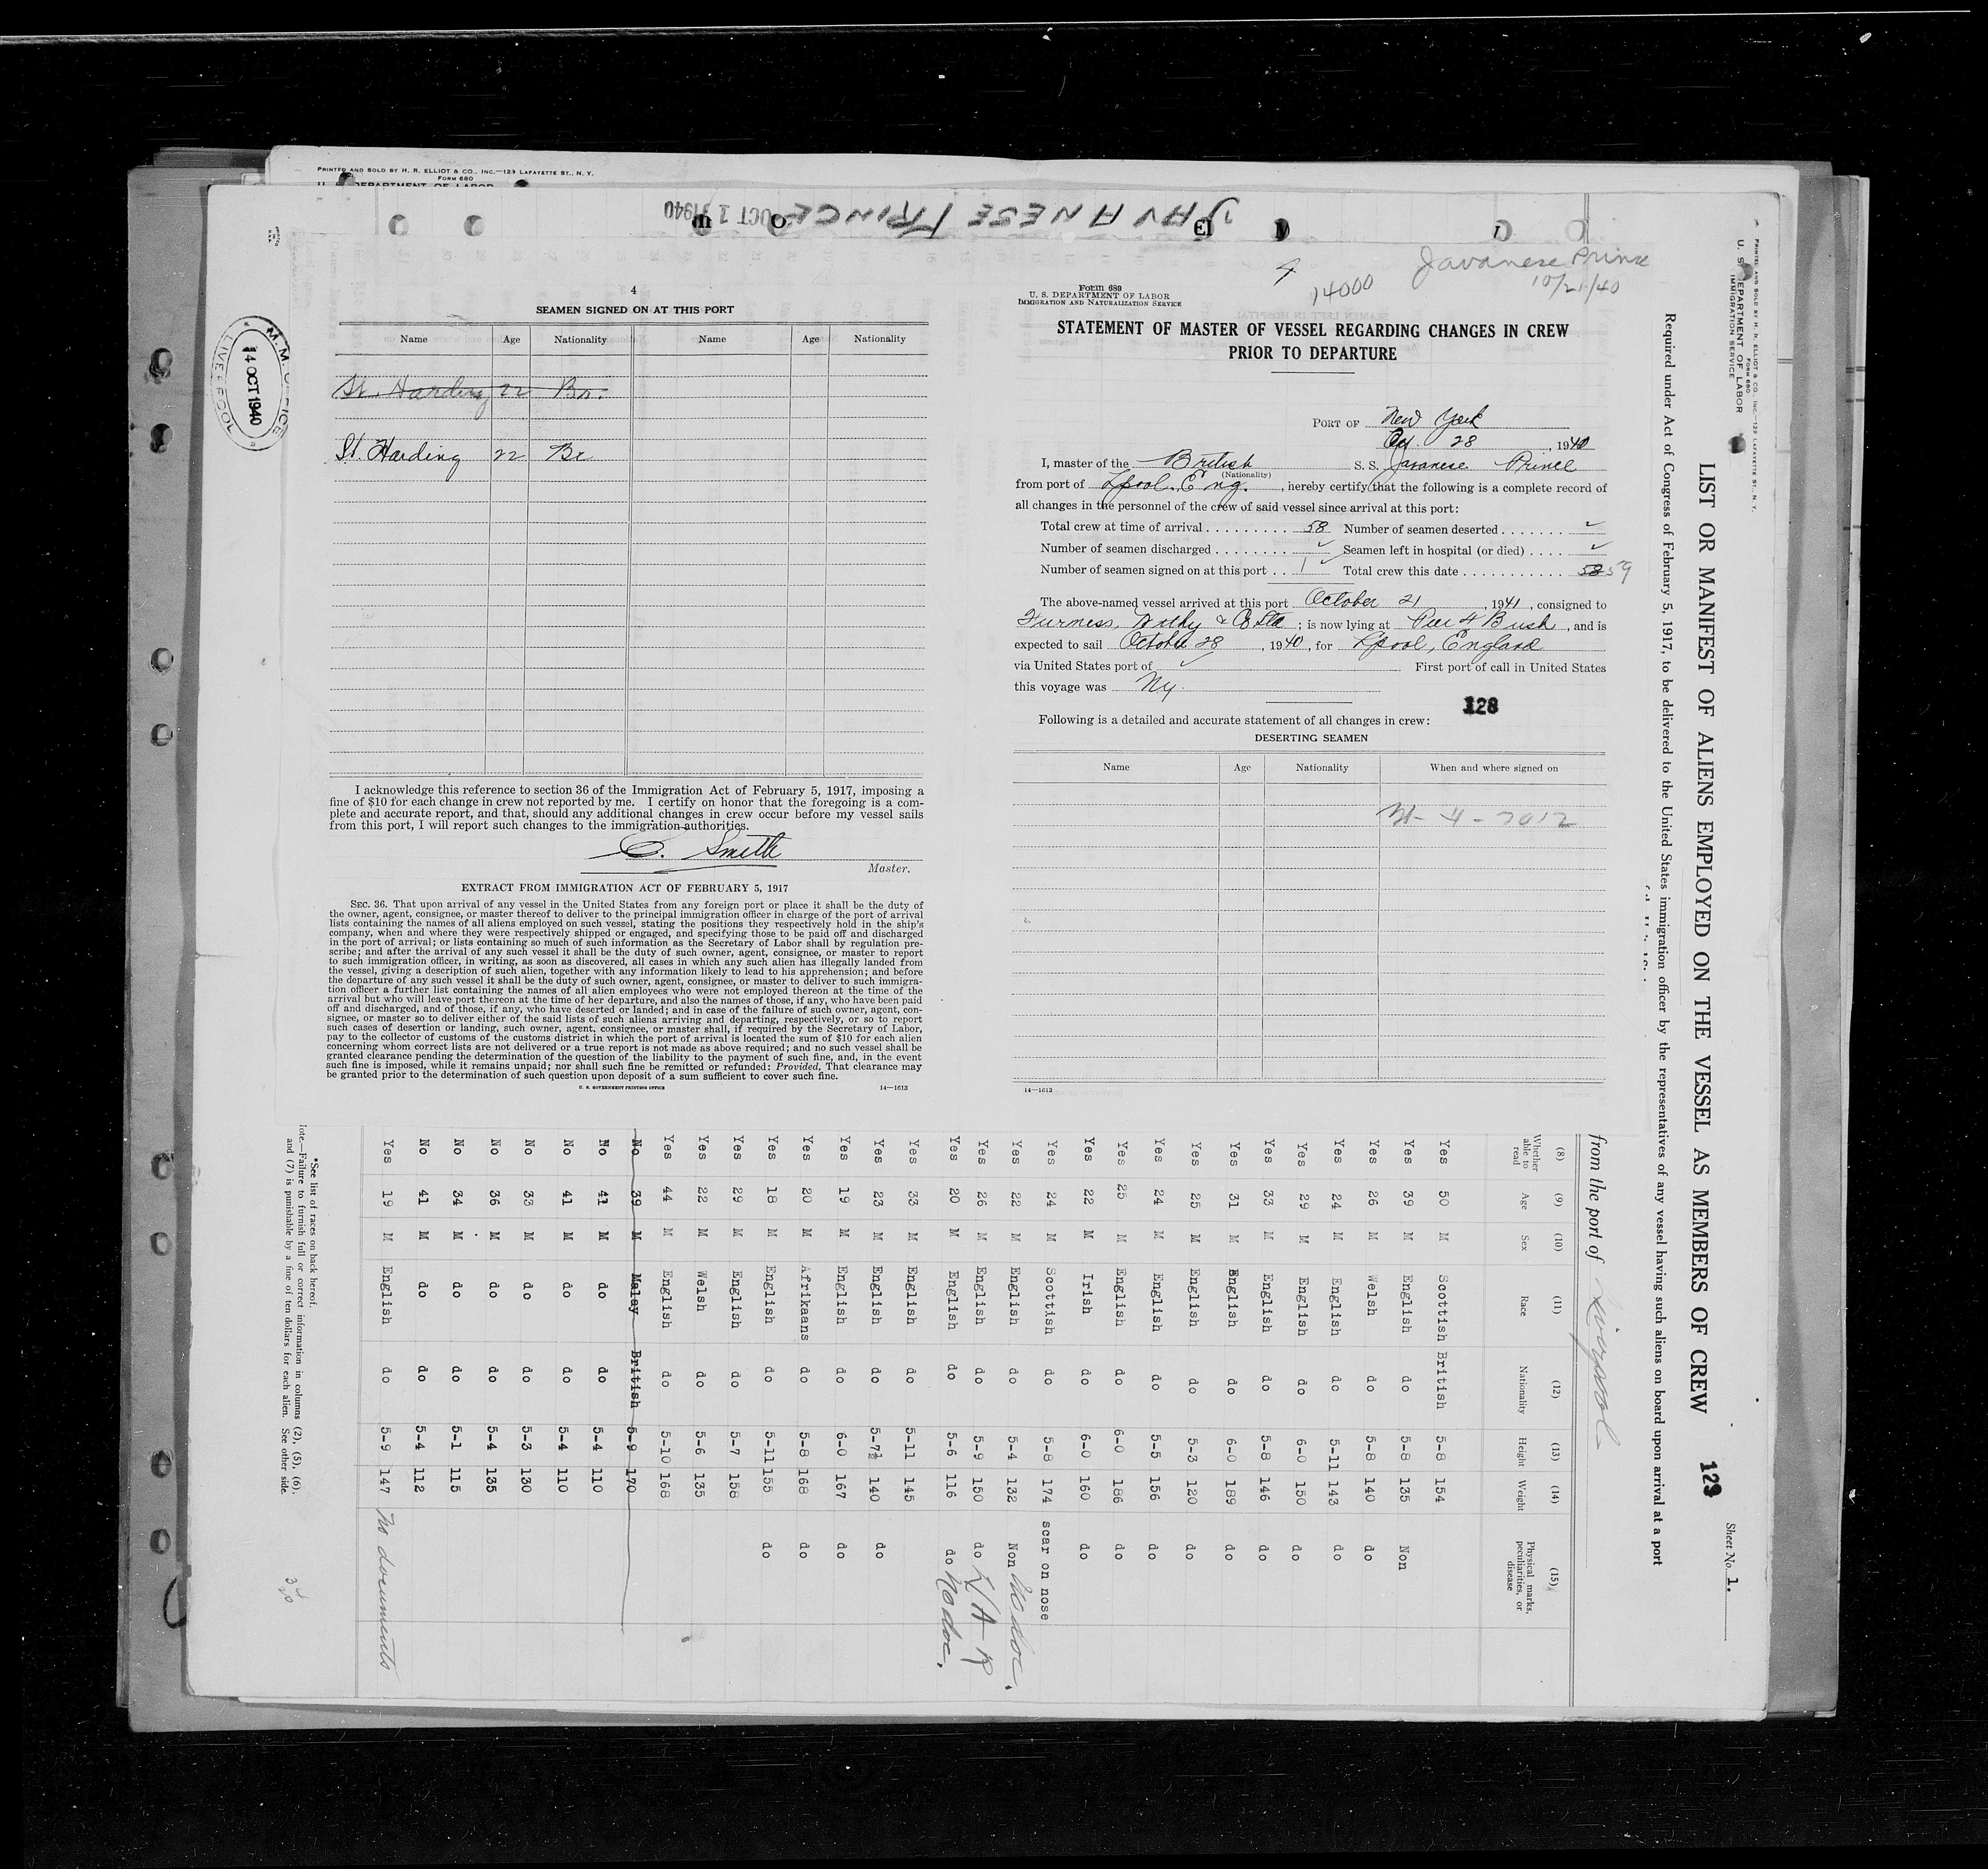 PRINTED AND SOLD BY H. R. ELLIOT & CO., INC.—129 LAFAYETTE ST., N. Y.
FORM 680
U. S. DEPARTMENT OF LABOR
JAVANESE PRINCE OCT 21 1940
Javanese Prince
10/21/40
4
14000
4
SEAMEN SIGNED ON AT THIS PORT
Name Age Nationality Name Age Nationality
St. Harding 22 Br.
St. Harding 22 Br
14 OCT 1940
LIVERPOOL
I acknowledge this reference to section 36 of the Immigration Act of February 5, 1917, imposing a
fine of $10 for each change in crew not reported by me. I certify on honor that the foregoing is a com-
plete and accurate report, and that, should any additional changes in crew occur before my vessel sails
from this port, I will report such changes to the immigration authorities.
C. Smith
Master.
EXTRACT FROM IMMIGRATION ACT OF FEBRUARY 5, 1917
SEC. 36. That upon arrival of any vessel in the United States from any foreign port or place it shall be the duty of
the owner, agent, consignee, or master thereof to deliver to the principal immigration officer in charge of the port of arrival
lists containing the names of all aliens employed on such vessel, stating the positions they respectively hold in the ship's
company, when and where they were respectively shipped or engaged, and specifying those to be paid off and discharged
in the port of arrival; or lists containing so much of such information as the Secretary of Labor shall by regulation pre-
scribe; and after the arrival of any such vessel it shall be the duty of such owner, agent, consignee, or master to report
to such immigration officer, in writing, as soon as discovered, all cases in which any such alien has illegally landed from
the vessel, giving a description of such alien, together with any information likely to lead to his apprehension; and before
the departure of any such vessel it shall be the duty of such owner, agent, consignee, or master to deliver to such immigra-
tion officer a further list containing the names of all alien employees who were not employed thereon at the time of the
arrival but who will leave port thereon at the time of her departure, and also the names of those, if any, who have been paid
off and discharged, and of those, if any, who have deserted or landed; and in case of the failure of such owner, agent, con-
signee, or master so to deliver either of the said lists of such aliens arriving and departing, respectively, or so to report
such cases of desertion or landing, such owner, agent, consignee, or master shall, if required by the Secretary of Labor,
pay to the collector of customs of the customs district in which the port of arrival is located the sum of $10 for each alien
concerning whom correct lists are not delivered or a true report is not made as above required; and no such vessel shall be
granted clearance pending the determination of the question of the liability to the payment of such fine, and, in the event
such fine is imposed, while it remains unpaid; nor shall such fine be remitted or refunded: Provided, That clearance may
be granted prior to the determination of such question upon deposit of a sum sufficient to cover such fine.
U. S. GOVERNMENT PRINTING OFFICE 14—1613
Form 689
U. S. DEPARTMENT OF LABOR
IMMIGRATION AND NATURALIZATION SERVICE
STATEMENT OF MASTER OF VESSEL REGARDING CHANGES IN CREW
PRIOR TO DEPARTURE
PORT OF New York
Oct. 28, 1940
I, master of the British S. S. Javanese Prince
(Nationality)
from port of Lpool. Eng., hereby certify that the following is a complete record of
all changes in the personnel of the crew of said vessel since arrival at this port:
Total crew at time of arrival 58 Number of seamen deserted ✓
Number of seamen discharged ✓ Seamen left in hospital (or died) ✓
Number of seamen signed on at this port 1 ✓ Total crew this date 58 59
The above-named vessel arrived at this port October 21, 1941, consigned to
Furness, Withy & Co Ltd; is now lying at Pier 4 Bush, and is
expected to sail October 28, 1940, for Lpool, England
via United States port of ✓ First port of call in United States
this voyage was Ny.
128
Following is a detailed and accurate statement of all changes in crew:
DESERTING SEAMEN
Name Age Nationality When and where signed on
14—1613
PRINTED AND SOLD BY H. R. ELLIOT & CO., INC.—129 LAFAYETTE ST., N. Y.
FORM 680
U. S. DEPARTMENT OF LABOR
IMMIGRATION SERVICE
Sheet No. 1.
LIST OR MANIFEST OF ALIENS EMPLOYED ON THE VESSEL AS MEMBERS OF CREW 129
Required under Act of Congress of February 5, 1917, to be delivered to the United States immigration officer by the representatives of any vessel having such aliens on board upon arrival at a port
from the port of Liverpool
(8) (9) (10) (11) (12) (13) (14) (15)
Whether able to read Age Sex Race Nationality Height Weight Physical marks, peculiarities, or disease
Yes 50 M Scottish British 5-8 154
Yes 39 M English do 5-8 135 Non
Yes 26 M Welsh do 5-8 140 do
Yes 24 M English do 5-11 143 do
Yes 29 M English do 6-0 150 do
Yes 33 M English do 5-8 146 do
Yes 31 M English do 6-0 189 do
Yes 25 M English do 5-3 120 do
Yes 24 M English do 5-5 156 do
Yes 25 M English do 6-0 186 do
Yes 22 M Irish do 6-0 160 do
Yes 24 M Scottish do 5-8 174 scar on nose
Yes 22 M English do 5-4 132 Non No doc.
Yes 26 M English do 5-9 150 do
Yes 20 M English do 5-6 116 do No doc.
Yes 33 M English do 5-11 145
Yes 23 M English do 5-7½ 140 do
Yes 19 M English do 6-0 167 do
Yes 20 M Afrikaans do 5-8 168 do
Yes 18 M English do 5-11 155 do
Yes 29 M English do 5-7 158
Yes 22 M Welsh do 5-6 135
Yes 44 M English do 5-10 168
No 39 M Malay British 5-9 170
No 41 M do do 5-4 110
No 41 M do do 5-4 110
No 33 M do do 5-3 130
No 36 M do do 5-4 135
No 34 M do do 5-1 115
No 41 M do do 5-4 112
Yes 19 M English do 5-9 147 No documents
*See list of races on back hereof.
Note.—Failure to furnish full or correct information in columns (2), (5), (6),
and (7) is punishable by a fine of ten dollars for each alien. See other side.